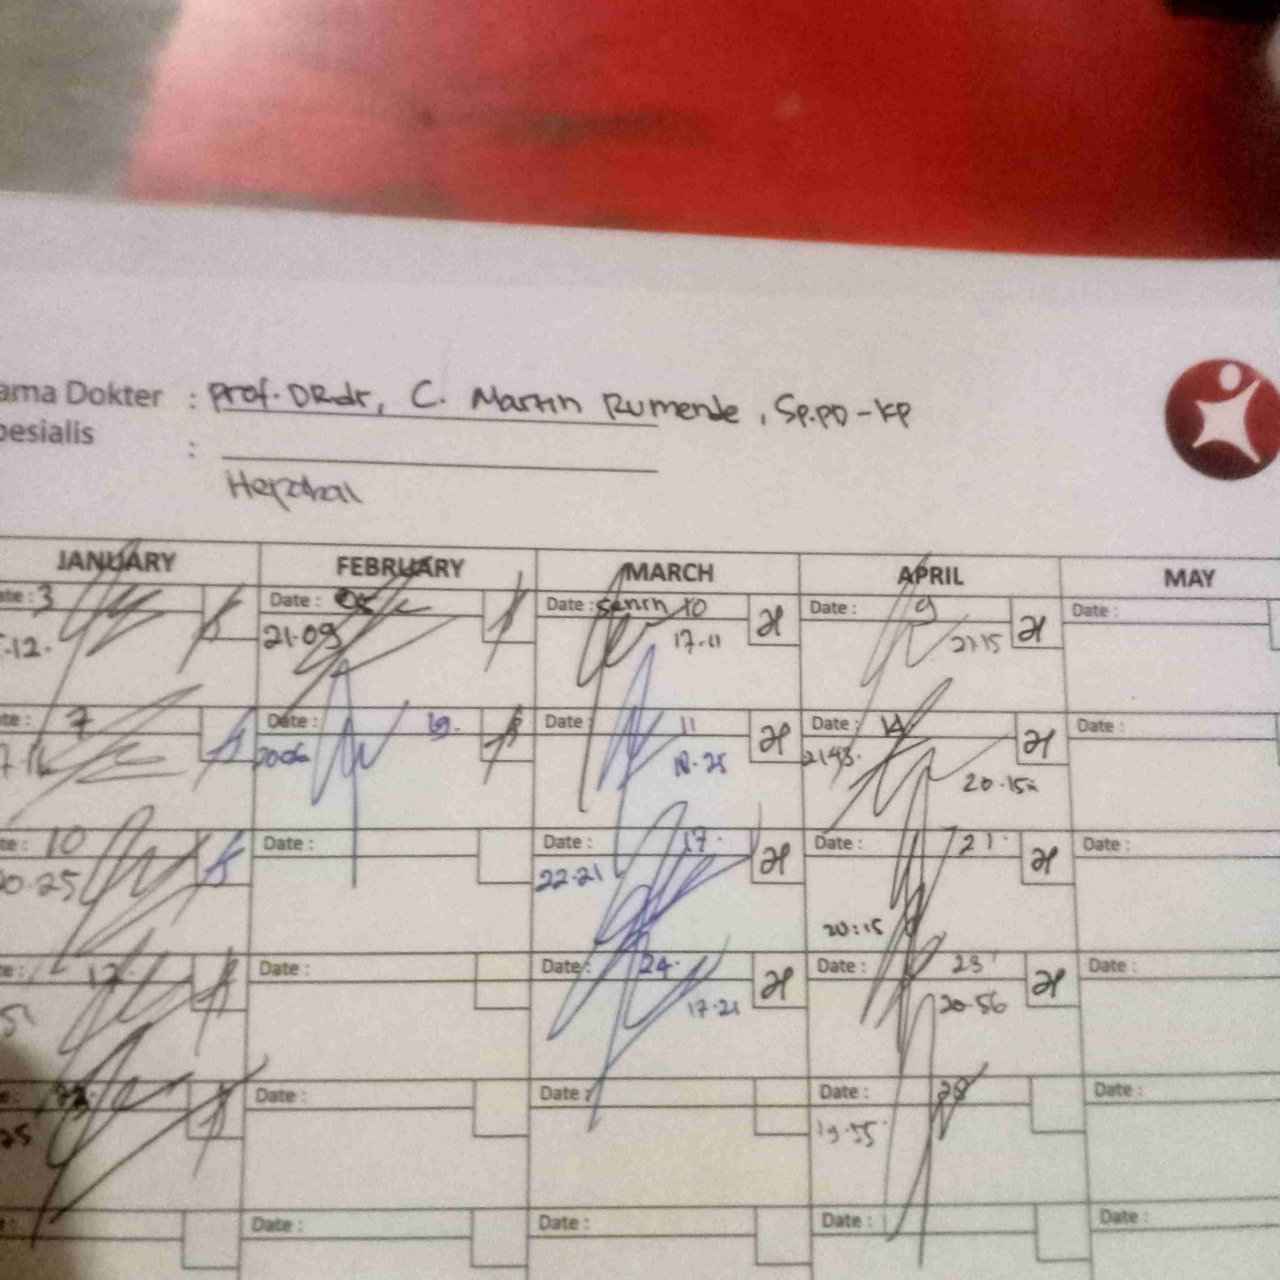 ama Dokter : Prof. DR.dr, C. Martin Rumende, Sp.PD-KP
pesialis :
JANUARY FEBRUARY MARCH APRIL MAY
ate : 3 Date : 05 Date : senin 10 Date : 9 Date :
.12. 21.09 17.11 21.15
ate : 7 Date : 19. Date : 11 Date : 14 Date :
2006 18.25 2143. 20.15
te : 10 Date : Date : 17. Date : 21. Date :
20.25 22.21 20:15
e : 17 Date : Date : 24. Date : 23 Date :
51 17.21 20.56
e : Date : Date : Date : 28 Date :
25 19.55
: Date : Date : Date : Date :